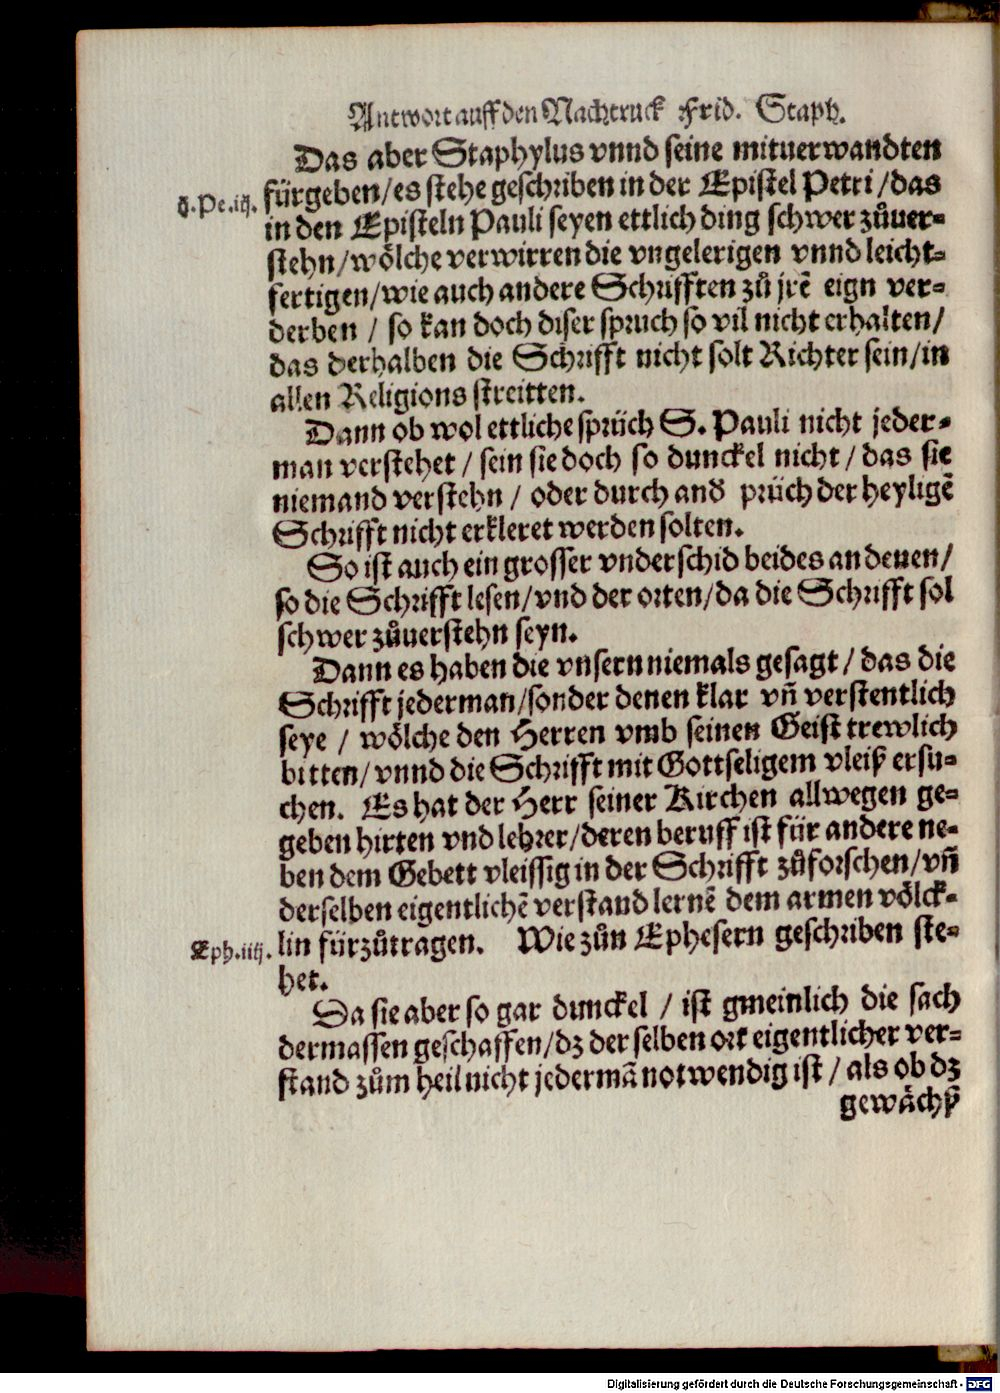 Antwort auff den Nachtruck Frid. Staph.
Das aber Staphylus vnnd seine mituerwandten
fürgeben/es stehe geschriben in der Epistel Petri/das
2.Pe.iij.
in den Episteln Pauli seyen ettlich ding schwer zůuer-
stehn/wölche verwirren die vngelerigen vnnd leicht-
fertigen/wie auch andere Schrifften zů jrẽ eign ver-
derben / so kan doch diser spruch so vil nicht erhalten/
das derhalben die Schrifft nicht solt Richter sein/in
allen Religions streitten.
Dann ob wol ettliche sprüch S. Pauli nicht jeder-
man verstehet / sein sie doch so dunckel nicht / das sie
niemand verstehn / oder durch and prüch der heyligẽ
Schrifft nicht erkleret werden solten.
So ist auch ein grosser vnderschid beides an denen/
so die Schrifft lesen/vnd der orten/da die Schrifft sol
schwer zůuerstehn seyn.
Dann es haben die vnsern niemals gesagt / das die
Schrifft jederman/sonder denen klar vñ verstentlich
seye / wölche den Herren vmb seinen Geist trewlich
bitten/vnnd die Schrifft mit Gottseligem vleiß ersu-
chen. Es hat der Herr seiner Kirchen allwegen ge-
geben hirten vnd lehrer/deren beruff ist für andere ne-
ben dem Gebett vleissig in der Schrifft zůforschen/vñ
derselben eigentlichẽ verstand lernẽ dem armen völck-
lin fürzůtragen. Wie zůn Ephesern geschriben ste-
Eph.iiij.
het.
Da sie aber so gar dunckel / ist gmeinlich die sach
dermassen geschaffen/dz der selben ort eigentlicher ver-
stand zům heil nicht jedermã notwendig ist / als ob dz
gewächß
Digitalisierung gefördert durch die Deutsche Forschungsgemeinschaft - DFG